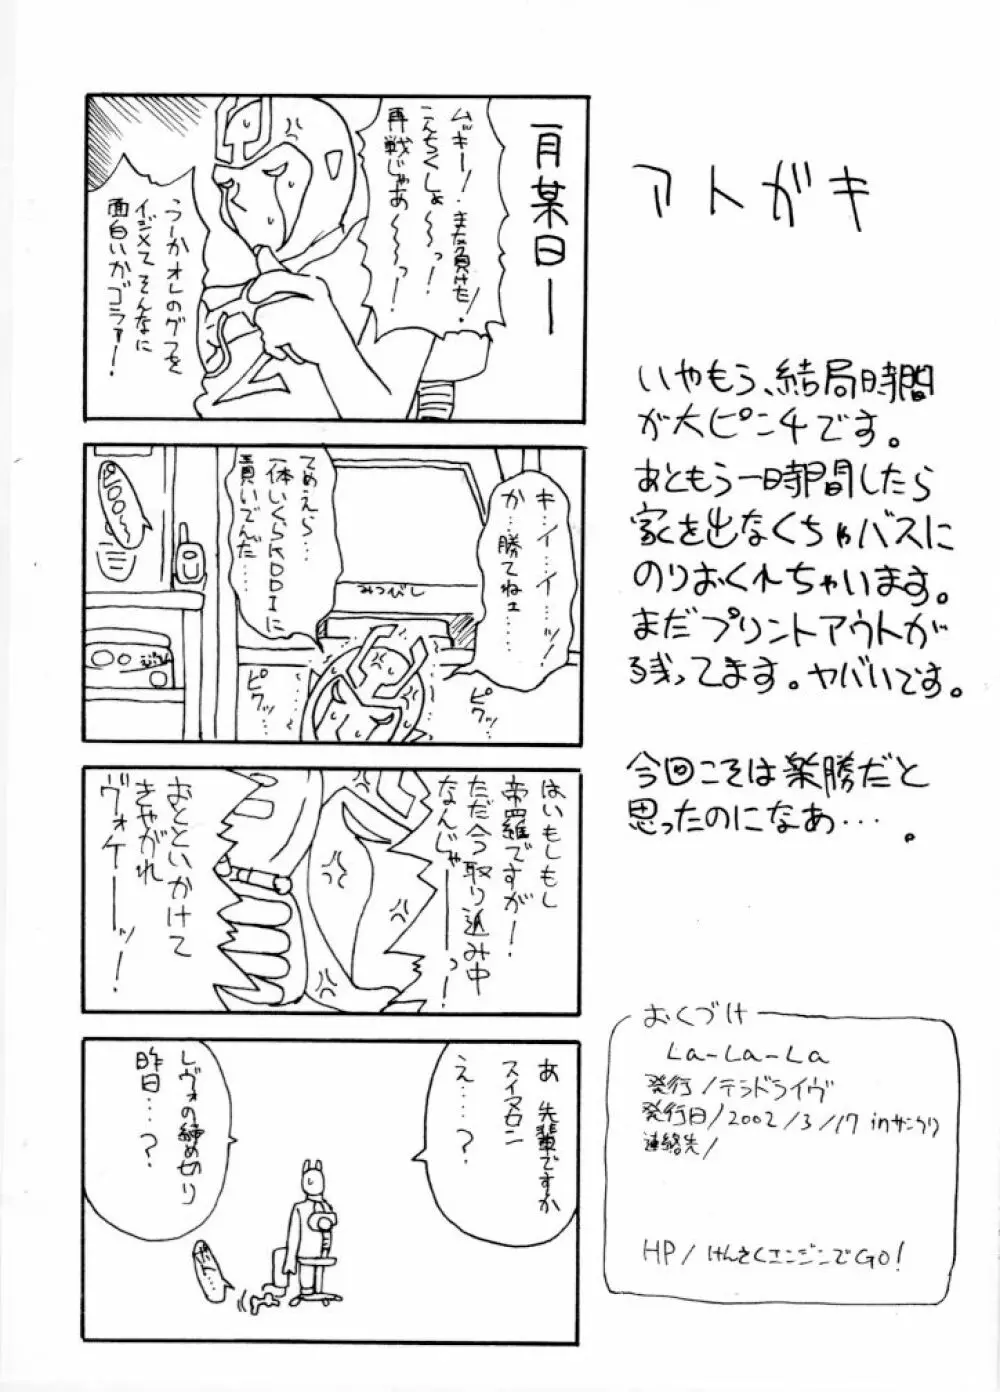 アトガキ
一月某日―
ムッキー!また負けた!
こんちくしょ〜〜っ!
再戦じゃあ〜〜っ!
うーかオレのグフを
イジメてそんなに
面白いかゴラァー!
キ…イ…イ…ッ!
か…勝てねェ……
てめえら…
一体いくらKDDIに
貢いでんだ……
みつびし
ピクッ…
ピクッ…
はいもしもし
帝羅ですが!
ただ今取り込み中
なんじゃ――っ!
おとといかけて
きやがれ
ヴォケ――ッ!
あ 先輩ですか
スイマセン
え…?
レヴォの締め切り
昨日……?
いやもう、結局時間
が大ピンチです。
あともう一時間したら
家を出なくちゃバスに
のりおくれちゃいます。
まだプリントアウトが
残ってます。ヤバいです。
今回こそは楽勝だと
思ったのになあ…。
おくづけ
La-La-La
発行/テラドライヴ
発行日/2002/3/17 inサンクリ
連絡先/
HP/けんさくエンジンでGO!